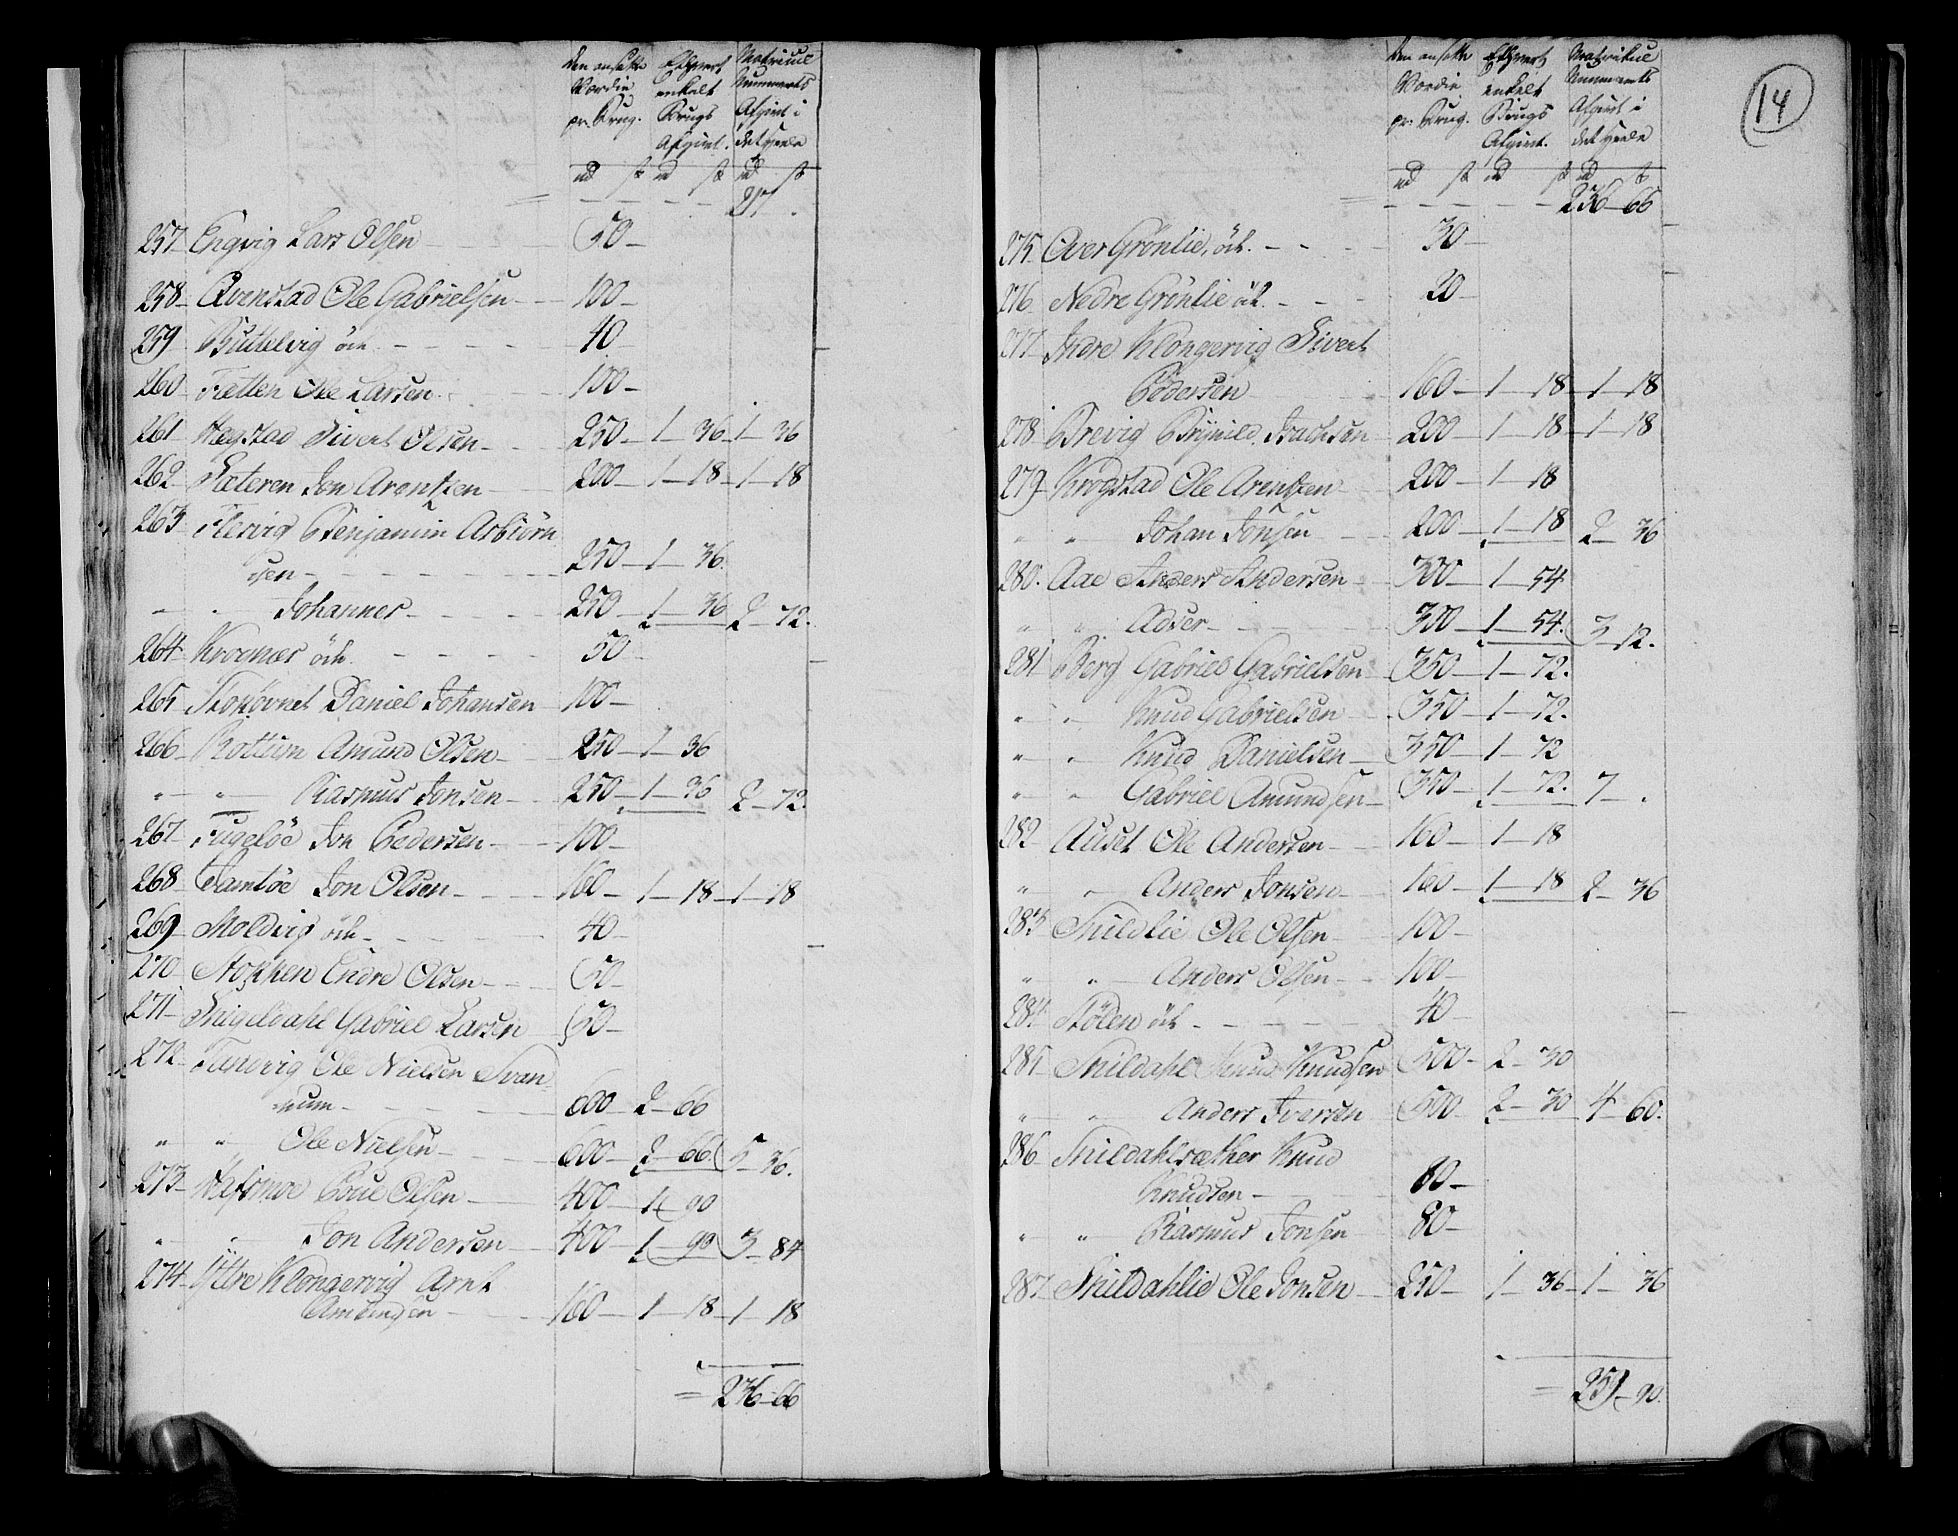 Den ansatte Ethvert Matricul
Værdie enkelt Nummerets
pr. Brug. Brugs Afgivt i
Afgivt. det heele
rd s rd s rd s
217 .
257 Engvig Lars Olsen 50
258 Qvenstad Ole Gabrielsen 100
259 Buttelvig öde 40
260 Fætten Ole Larsen 100
261 Hegstad Sivert Olsen 250 1 36 1 36
262 Sæteren Jon Arentzen 200 1 18 1 18
263 Flesvig Benjamin Asbiörn
sen 250 1 36
" " Johannes 250 1 36 2 72.
264 Krognæs öde 50
265 Daniel Johansen 100
266 Amund Olsen 250 1 36
" " Rasmus Jonsen 250 1 36 2 72.
267 Fugelöe Jon Pedersen 100
268 Jamtöe Jon Olsen 160 1 18 1 18
269 Moldvig öde 40
270 Stokken Endre Olsen 50
271 Snigeldahl Gabriel Larsen 50
272 Ole Nielsen Svan
num 600 2 66
" " Ole Nielsen 600 2 66 5 36.
273 Hafsmoe Poul Olsen 400 1 90
" " Jon Andersen 400 1 90 3 84
274 Yttre Klongervig Arnt
Amundsen 160 1 18 1 18
= 236 66
14
Den ansatte Ethvert Matrikul
Værdie enkelt Nummerets
pr. Brug. Brugs Afgivt i
Afgivt. det heele
rd s rd s rd s
236 66
275 Over Grönlie, öde. 30
276 Nedre Grönlie öde. 20
277 Indre Klongervig Sivert
Pedersen 160 1 18 1 18
278 Brevig Brynild Isachsen 200 1 18 1 18
279 Krogstad Ole Arentzen 200 1 18
" " Johan Jonsen 200 1 18 2 36
280. Aae Anders Andersen 300 1 54
" " Adser 300 1 54. 3 12.
281 Berg Gabriel Gabrielsen 350 1 72.
" " Knud Gabrielsen 350 1 72.
" " Knud Danielsen 350 1 72
" " Gabriel Amundsen 350 1 72. 7 .
282 Auset Ole Andersen 160 1 18
" " Anders Jonsen 160 1 18 2 36
283 Snildlie Ole Olsen 100
" " Anders Olsen 100
284 Stölen öde 40
285 Snildahl Knud Knudsen 500 2 30
" " Anders Iversen 500 2 30 4 60.
286 Snildahlsæther Knud
Knudsen 80
" " Rasmus Jonsen 80
287 Snildahlie Ole Jonsen 250 1 36 1 36
= 259 90.